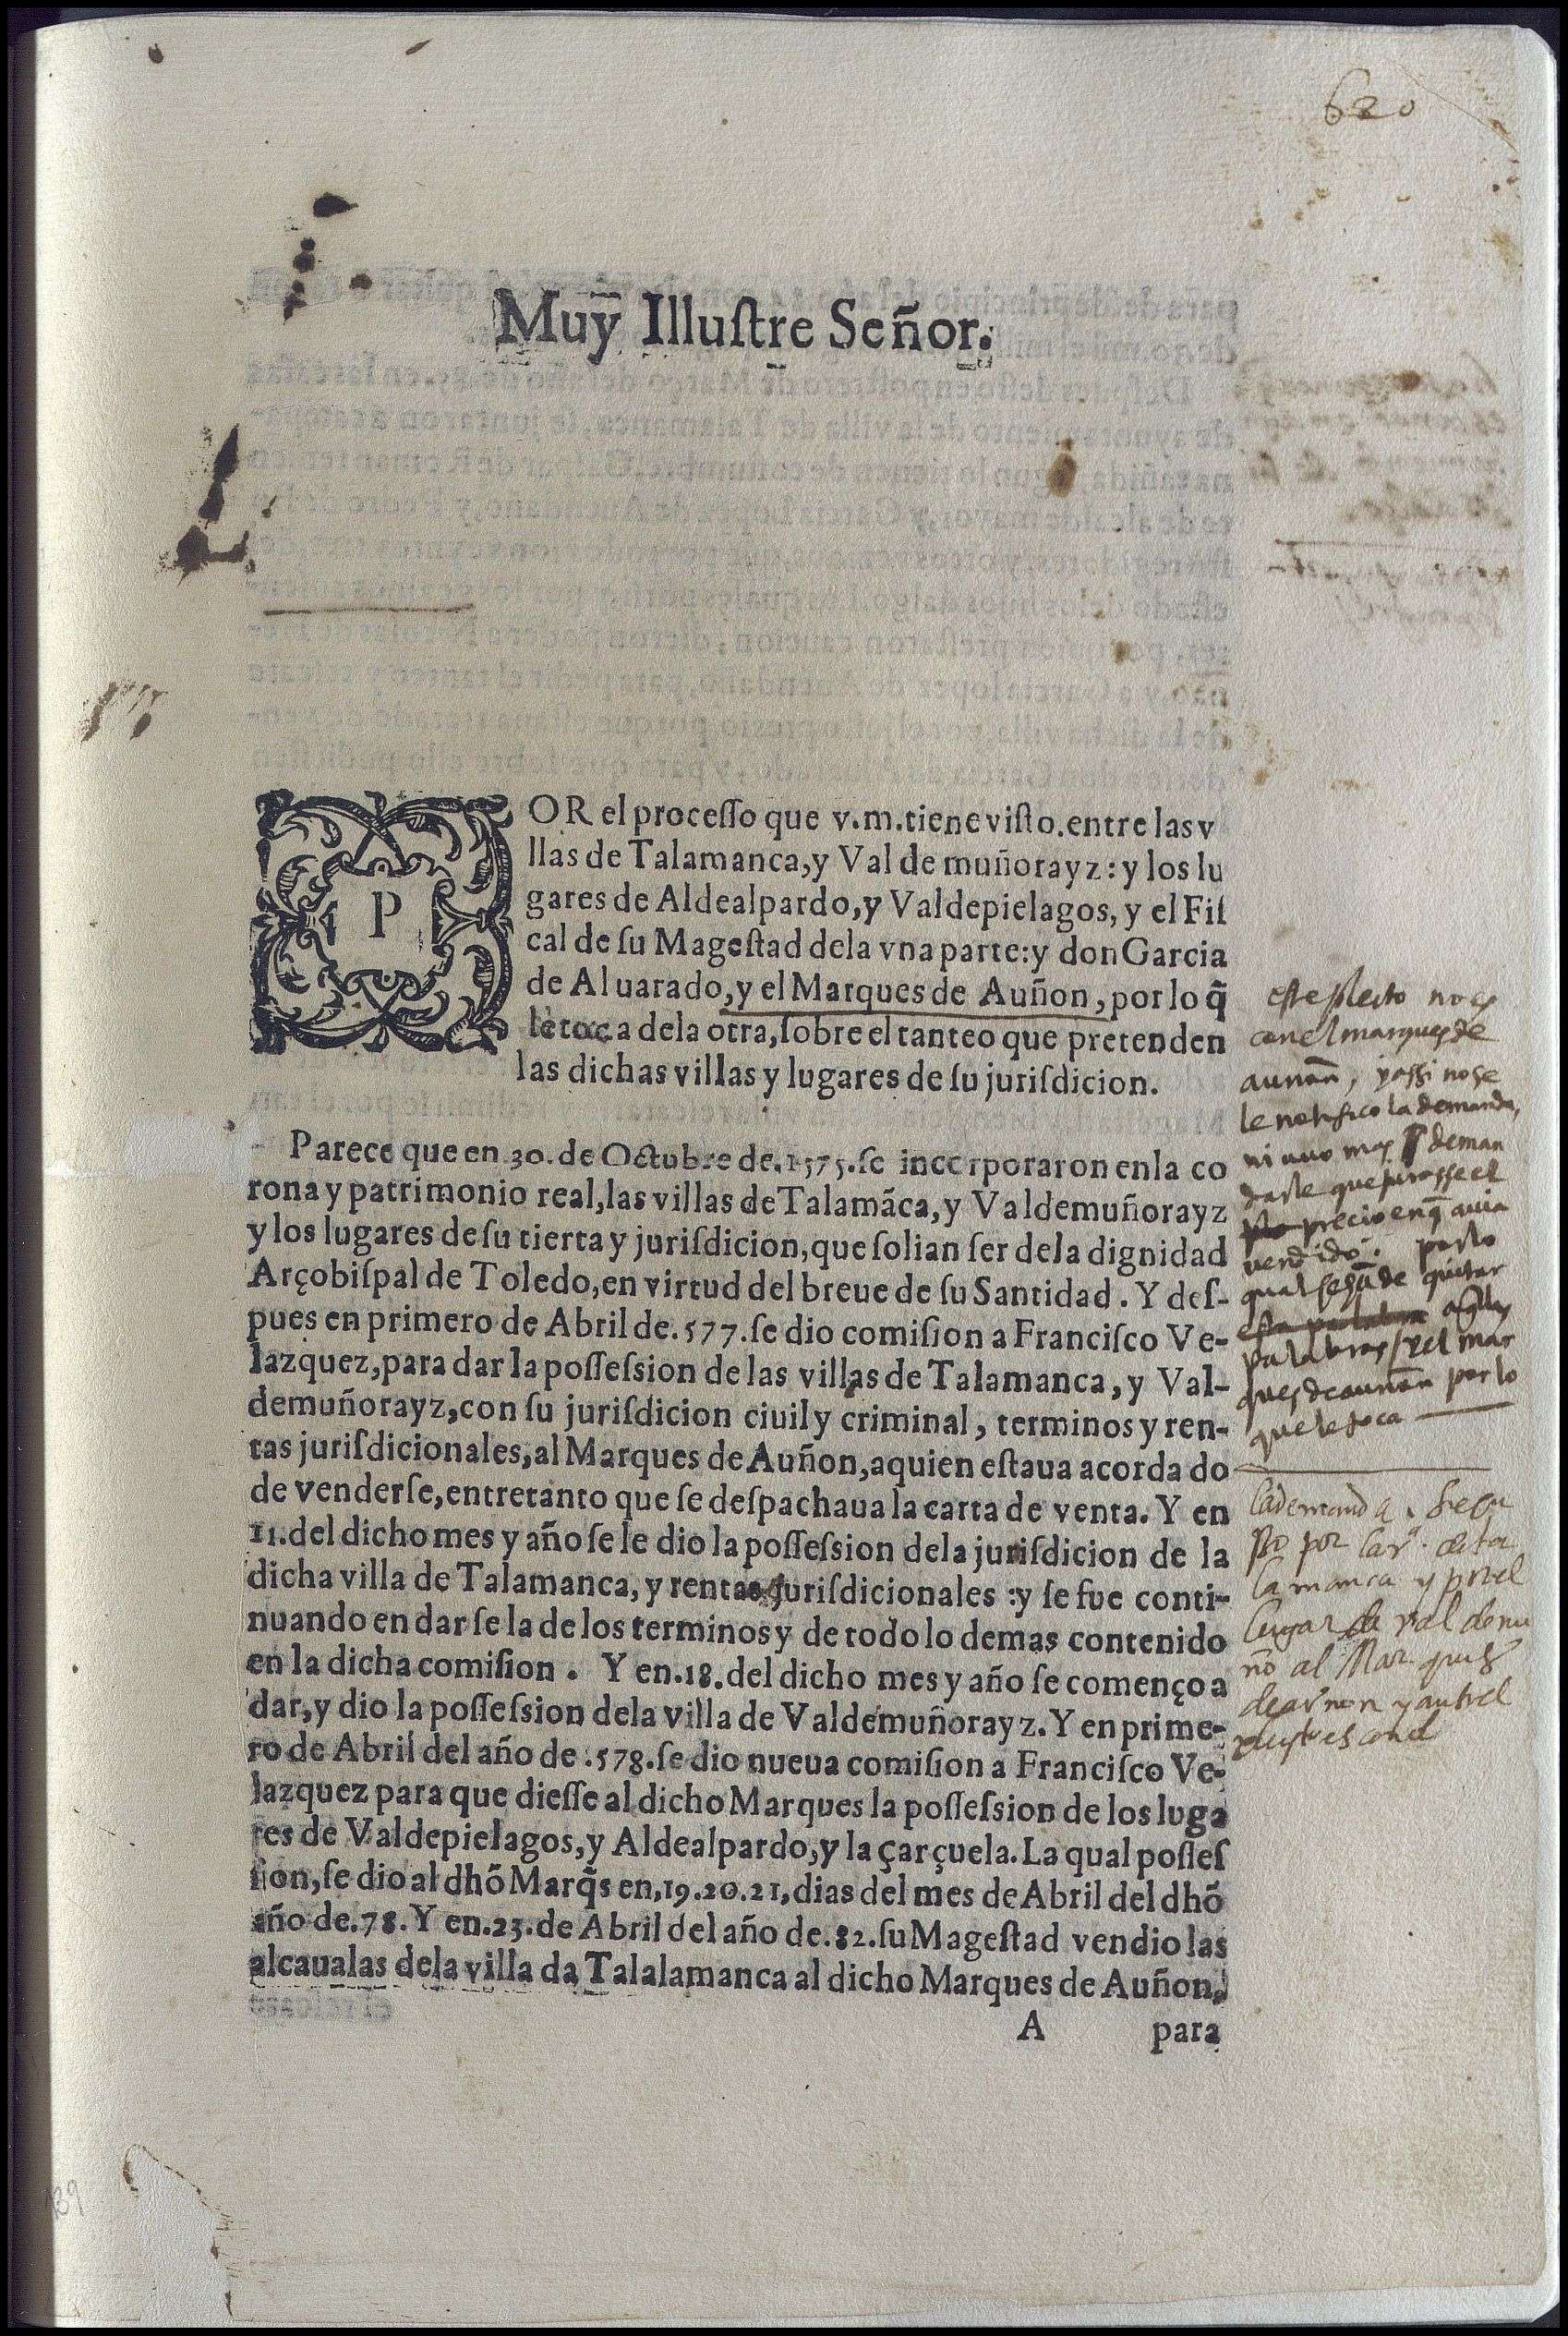 620
Muy Illuſtre Señor.
POR el proceſſo que v.m.tiene viſto.entre las v
llas de Talamanca,y Val de muñorayz: y los lu
gares de Aldealpardo,y Valdepielagos, y el Fiſ
cal de ſu Mageſtad dela vna parte:y don Garcia
de Aluarado,y el Marques de Auñon, por lo q̃
le toca dela otra,ſobre el tanteo que pretenden
las dichas villas y lugares de ſu juriſdicion.
Parece que en 30. de Octubre de.1575.ſe incorporaron enla co
rona y patrimonio real,las villas de Talamãca,y Valdemuñorayz
y los lugares de ſu tierra y juriſdicion,que ſolian ſer dela dignidad
Arçobiſpal de Toledo,en virtud del breue de ſu Santidad. Y deſ-
pues en primero de Abril de.577.ſe dio comiſion a Franciſco Ve-
lazquez,para dar la poſſeſsion de las villas de Talamanca, y Val-
demuñorayz,con ſu juriſdicion ciuil y criminal, terminos y ren-
tas juriſdicionales,al Marques de Auñon,aquien eſtaua acordado
de venderſe,entretanto que ſe deſpachaua la carta de venta. Y en
11.del dicho mes y año ſe le dio la poſſeſsion dela juriſdicion de la
dicha villa de Talamanca, y rentas juriſdicionales :y ſe fue conti-
nuando en darſela de los terminos y de todo lo demas contenido
en la dicha comiſion . Y en.18.del dicho mes y año ſe començo a
dar,y dio la poſſeſsion dela villa de Valdemuñorayz.Y en prime-
ro de Abril del año de .578.ſe dio nueua comiſion a Franciſco Ve-
lazquez para que dieſſe al dicho Marques la poſſeſsion de los luga
res de Valdepielagos,y Aldealpardo,y la çarçuela.La qual poſſeſ
ſion,ſe dio al dhõ Marq̃s en,19.20.21,dias del mes de Abril del dhõ
año de.78. Y en.23.de Abril del año de.82.ſu Mageſtad vendio las
alcaualas dela villa da Talalamanca al dicho Marques de Auñon,
A para
este pleito no es
con el marques de
aunon, y assi no se
le notifico la demanda,
ni uuo mas deman
darle que jurasse el
precio en q̃ auia
vendido. por lo
qual se ha de quitar
esta palabra aq̃llas
palabras y el mar
ques de aunon por lo
que le toca
la demanda
por
lamanca y por el
lugar de val de mu
no al Marques
de aunon y
es con el
139